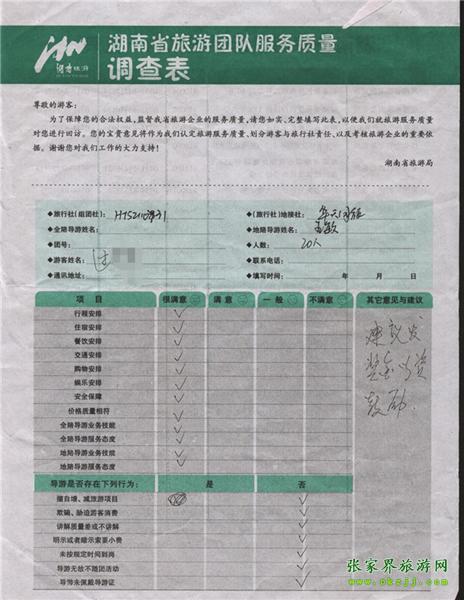 湖南旅游
湖南省旅游团队服务质量
调查表
尊敬的游客：
为了保障您的合法权益，监督我省旅游企业的服务质量，请您如实、完整填写此表，以便我们就旅游服务质量
对您进行回访。您的宝贵意见将作为我们认定旅游服务质量、划分游客与旅行社责任、以及考核旅游企业的重要依
据。谢谢您对我们工作的大力支持！
湖南省旅游局
◆旅行社(组团社)： ◆(旅行社)地接社：
◆全陪导游姓名： ◆地陪导游姓名：
◆团号： ◆人数： 20人
◆游客姓名： ◆联系电话：
◆通讯地址： ◆填写时间： 年 月 日
项 目 很满意 满 意 一 般 不满意 其它意见与建议
行程安排
住宿安排
餐饮安排
交通安排
购物安排
娱乐安排
安全保障
价格质量相符
全陪导游业务技能
全陪导游服务态度
地陪导游业务技能
地陪导游服务态度
建议发
奖金以资
鼓励
导游是否存在下列行为： 是 否
擅自增、减旅游项目
欺骗、胁迫游客消费
讲解质量差或不讲解
明示或者暗示索要小费
未按规定时间到岗
导游无故不随团活动
导游未佩戴导游证
张家界旅游网
www.okzjj.com